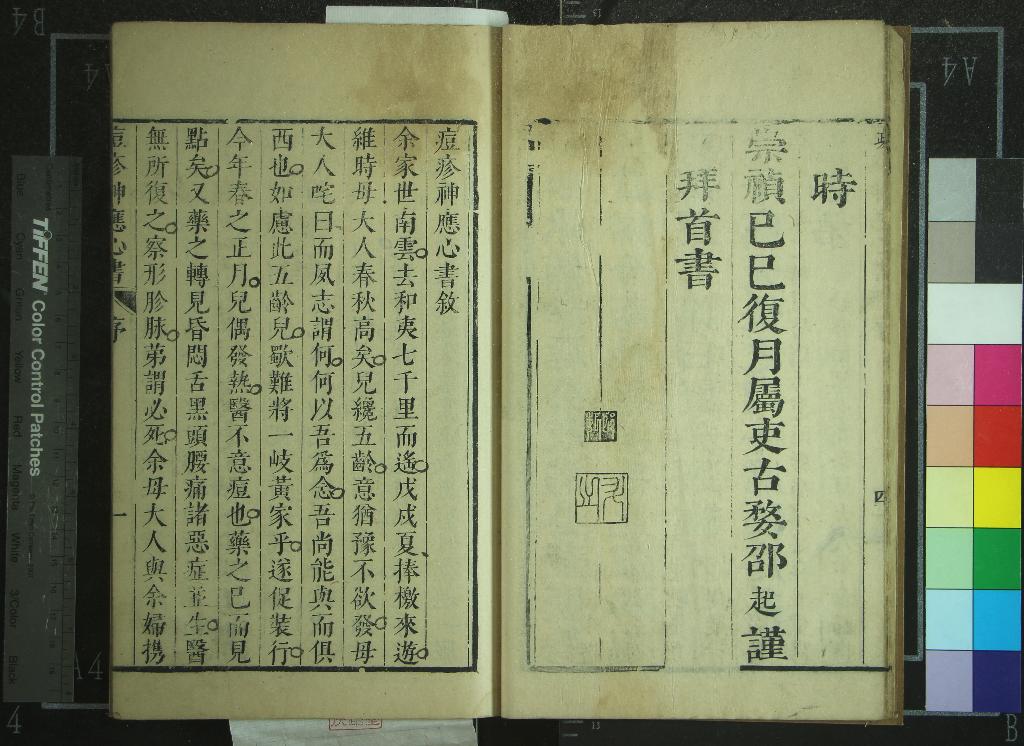 時
崇禎己巳復月屬吏古婺邵起謹
拜首書
四
痘疹神應心書敘
余家世南雲去和夷七千里而遙戊戌夏捧檄來遊
維時母大人春秋高矣兒纔五齡意猶豫不欲發母
大人咤曰而夙志謂何何以吾爲念吾尚能與而俱
西也如慮此五齡兒歟難將一岐黃家乎遂促裝行
今年春之正月兒偶發熱醫不意痘也藥之已而見
點矣又藥之轉見昏悶舌黑頭腰痛諸惡症並生醫
無所復之察形胗脉第謂必死余母大人與余婦携
痘疹神應心書
序
一
TIFFEN Color Control Patches
A4
A4
A4
B4
B
4
Blue
Cyan
Green
Yellow
Red
Magenta
White
3/Color
Black